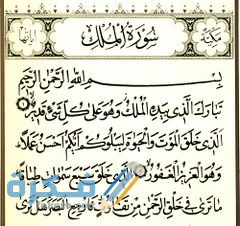 مكية سورة الملك آياتها
بسم الله الرحمن الرحيم
تبارك الذي بيده الملك وهو على كل شيء قدير
الذي خلق الموت والحيوة ليبلوكم أيكم أحسن عملا
وهو العزيز الغفور الذي خلق سبع سموات طباقا
ما ترى في خلق الرحمن من تفاوت فارجع البصر هل ترى
فكرة